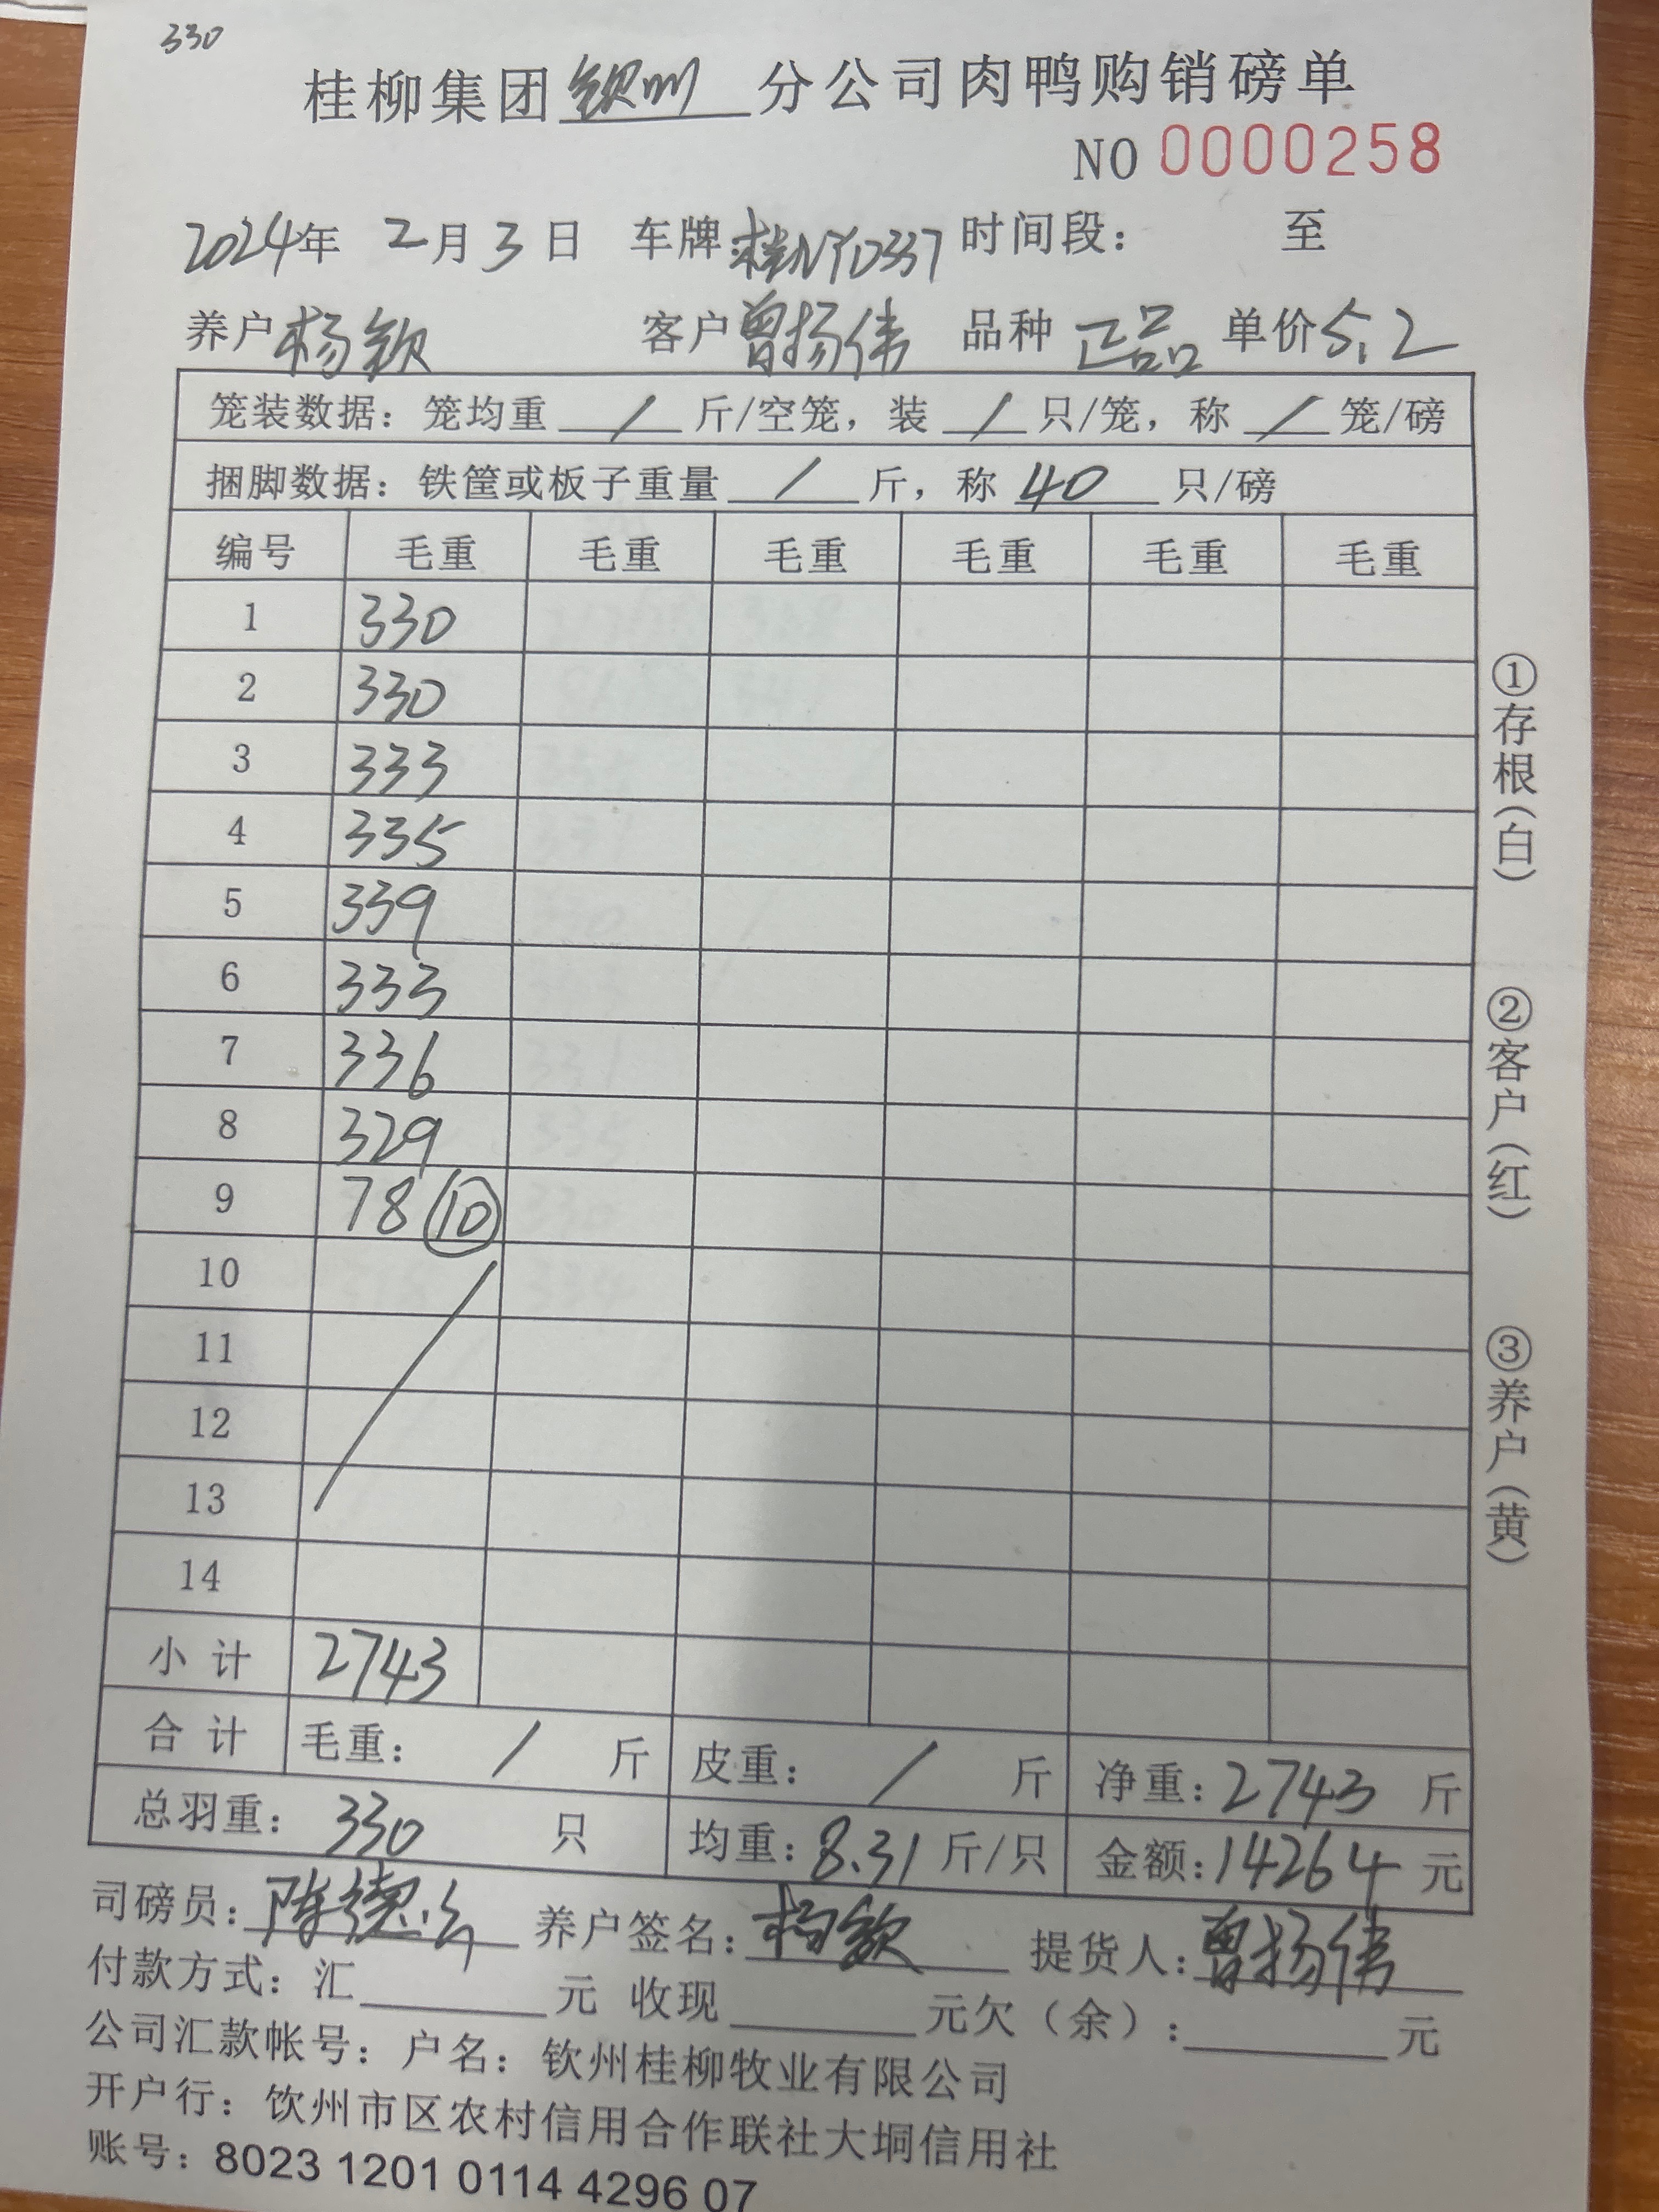 330
桂柳集团钦州分公司肉鸭购销磅单
NO 0000258
2024年 2月3日 车牌:桂NYD337 时间段: 至
养户杨钦 客户曾扬伟 品种 正品 单价5.2
笼装数据: 笼均重 / 斤/空笼, 装 / 只/笼, 称 / 笼/磅
捆脚数据: 铁筐或板子重量 / 斤, 称 40 只/磅
编号 毛重 毛重 毛重 毛重 毛重 毛重
1 330
2 330
3 333
4 335
5 339
6 333
7 336
8 329
9 78 ⑩
10
11
12
13
14
小计 2743
合计 毛重: / 斤 皮重: / 斤 净重:2743 斤
总羽重: 330 只 均重:8.31 斤/只 金额:14264 元
司磅员:陈德 养户签名:杨钦 提货人:曾扬伟
付款方式: 汇 元 收现 元欠(余): 元
公司汇款帐号: 户名: 钦州桂柳牧业有限公司
开户行: 饮州市区农村信用合作联社大垌信用社
账号: 8023 1201 0114 4296 07
①存根(白)
②客户(红)
③养户(黄)